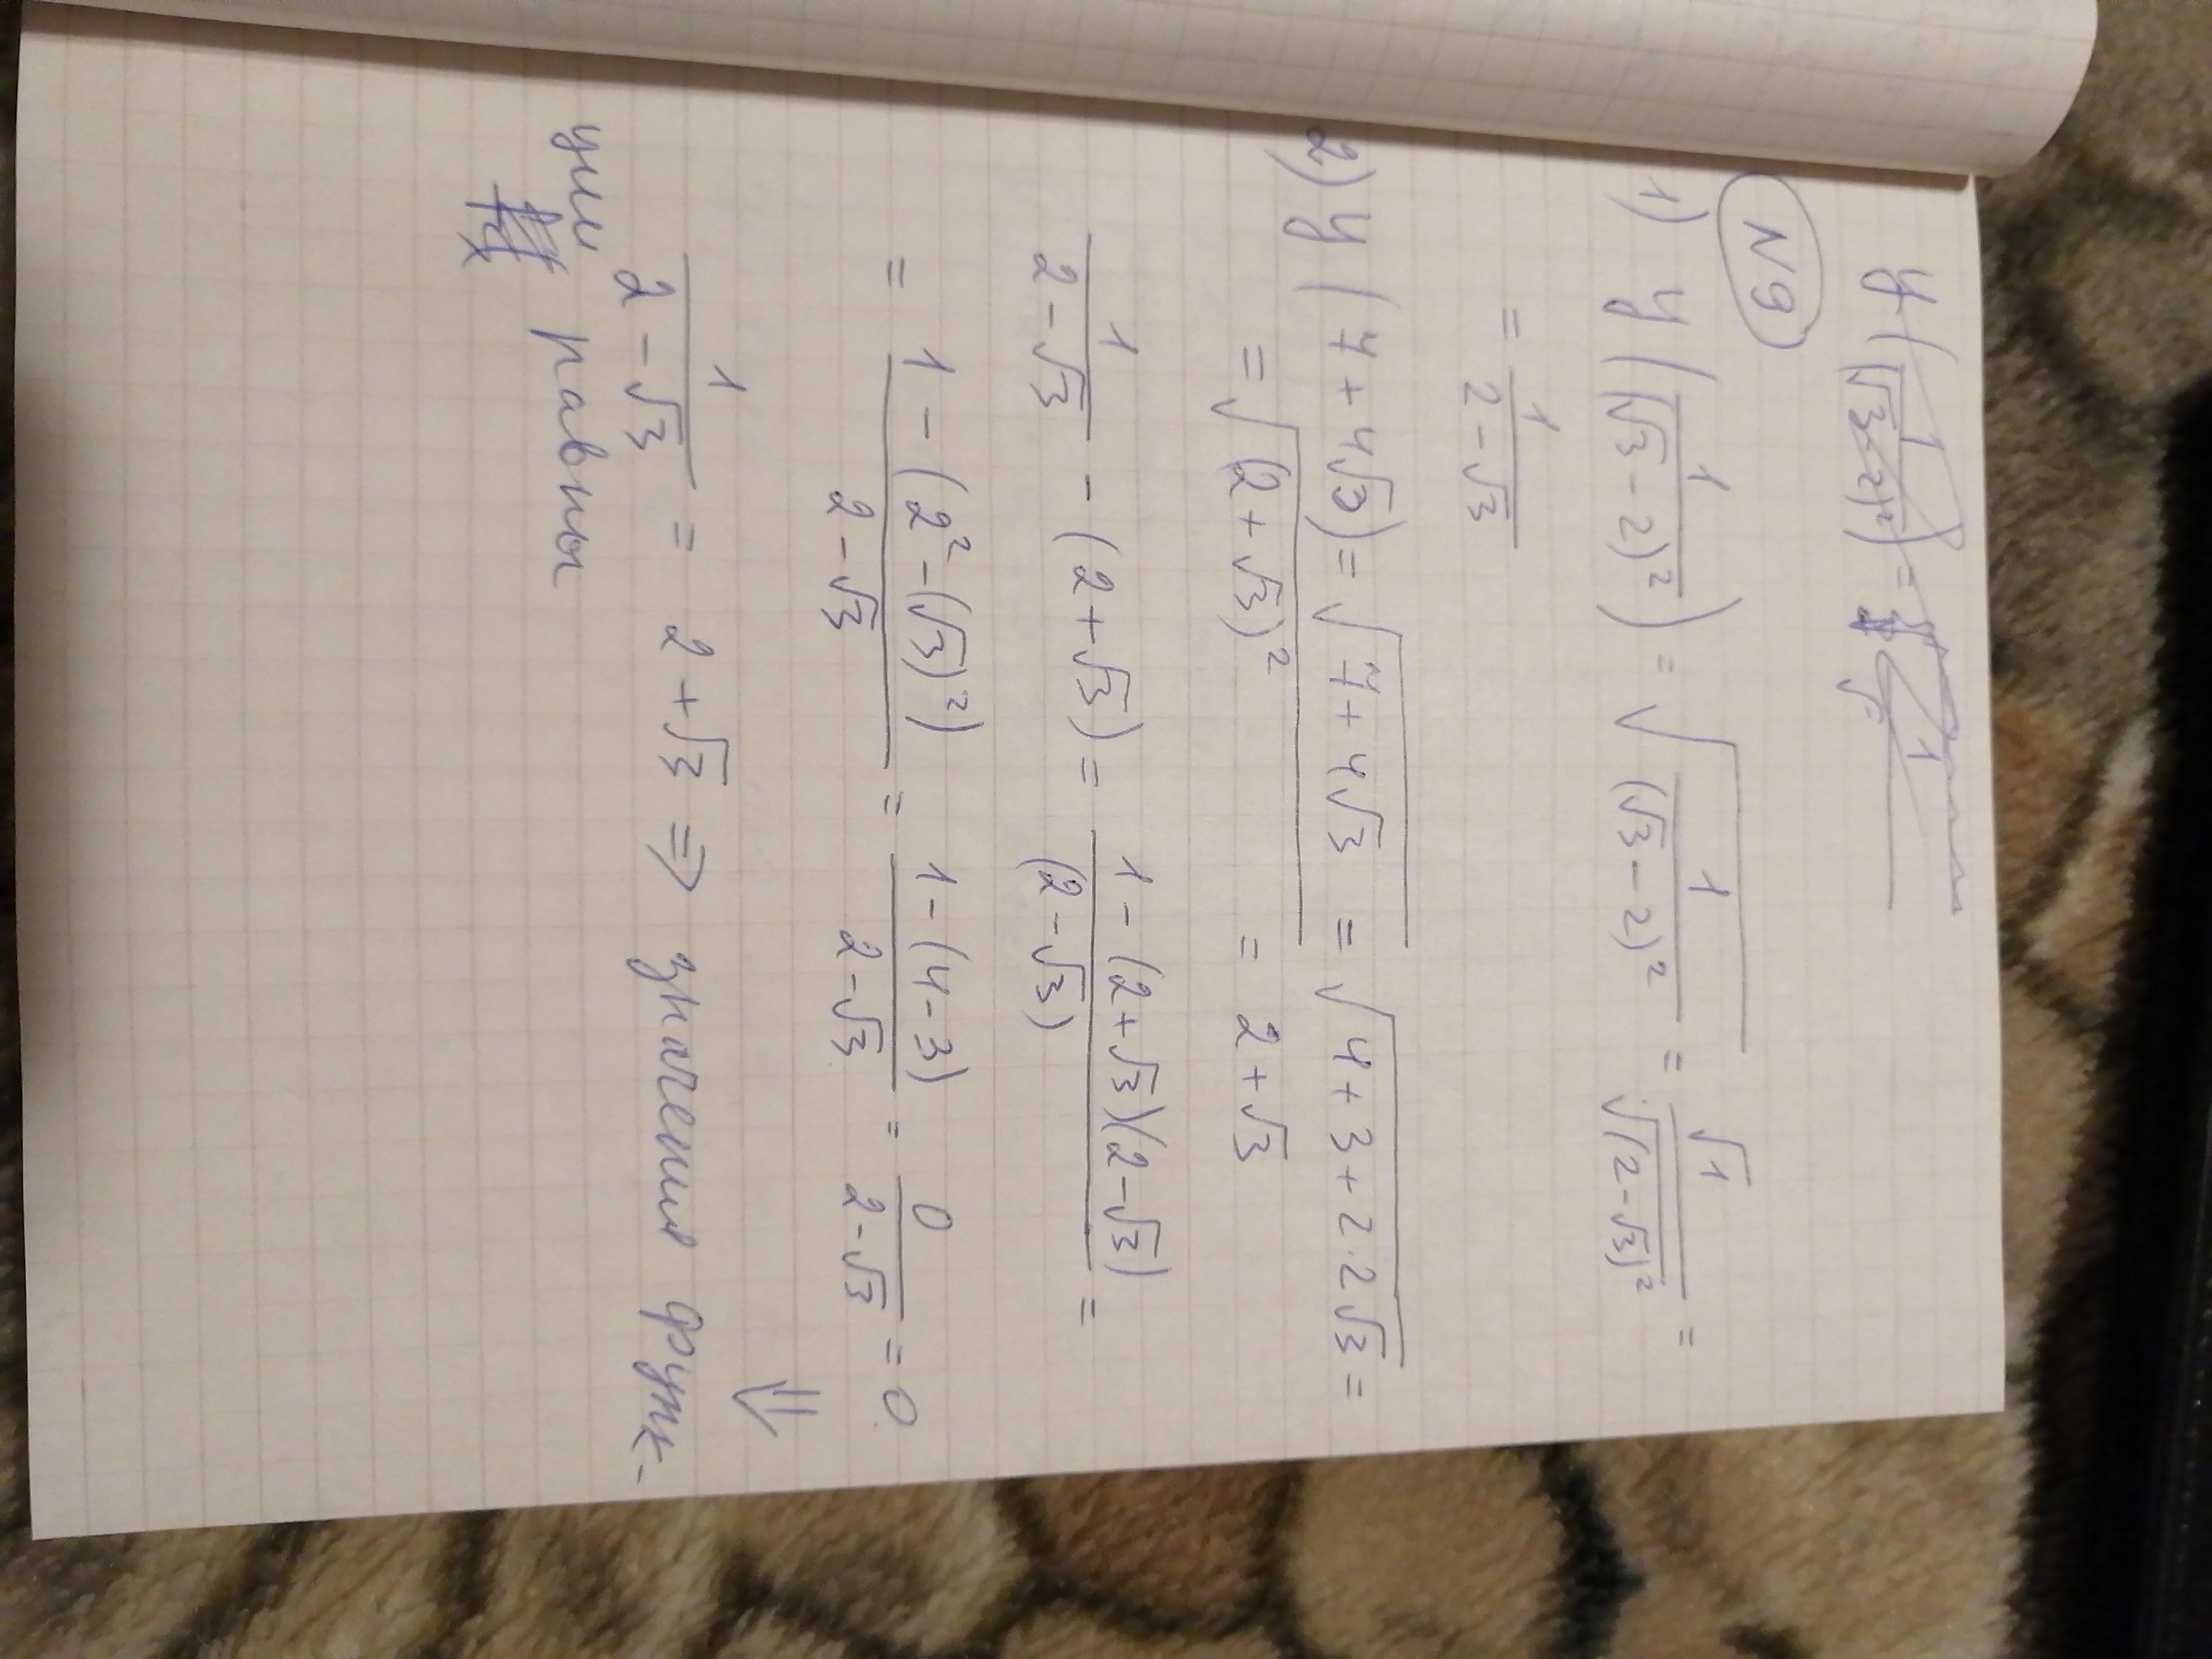 №9
1) y(1/(√3 - 2)²) = √(1/(√3 - 2)²) = √1/√(2-√3)² =
= 1/(2-√3)
2) y(7+4√3) = √(7+4√3) = √(4+3+2·2√3) =
= √(2+√3)² = 2+√3
1/(2-√3) - (2+√3) = (1-(2+√3)(2-√3))/(2-√3) =
= (1-(2²-(√3)²))/(2-√3) = (1-(4-3))/(2-√3) = 0/(2-√3) = 0
⇓
1/(2-√3) = 2+√3 ⇒ значения функ-
ции равны